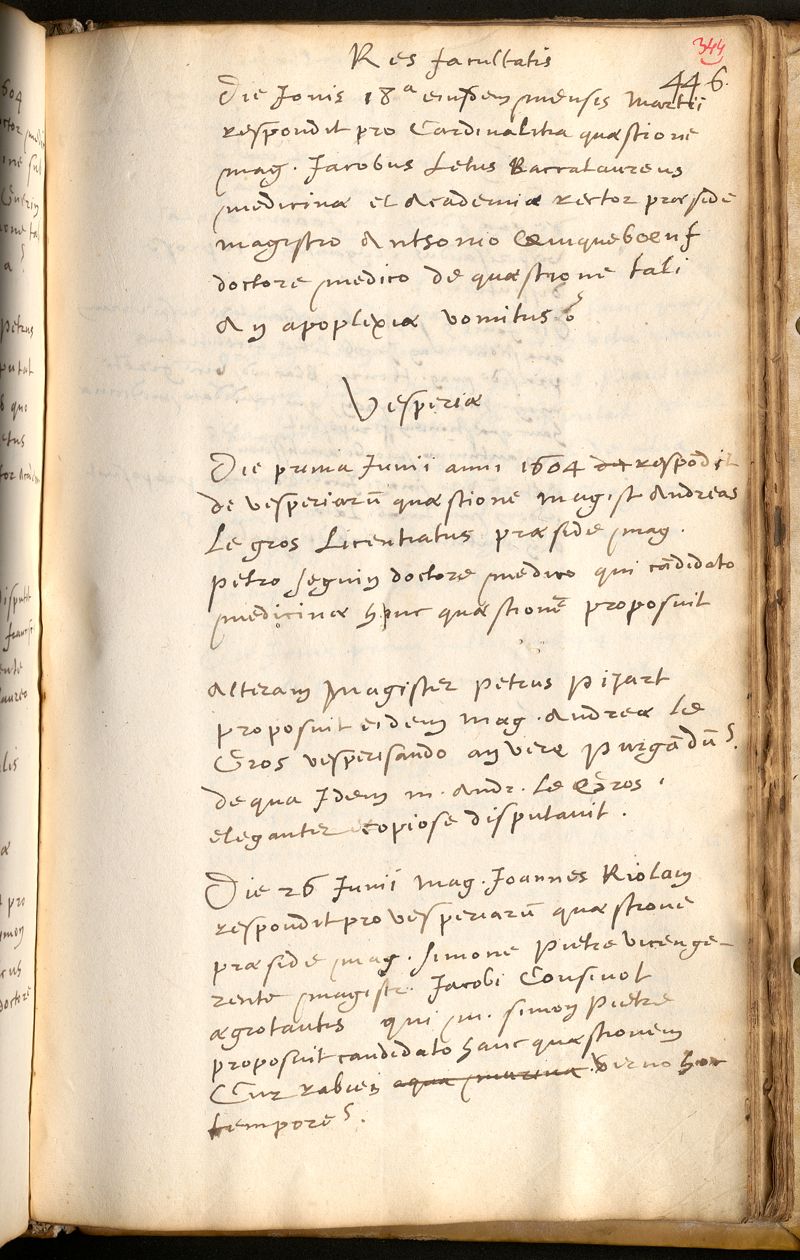 Res facultatis
344
446.
Die Jovis 18a eiusdem mensis Martii
respondit pro Cardinalitia quæstione
mag. Jacobus Letus Baccalaureus
medicinæ et Academiæ rector præside
magistro Antsonio Quinquebœuf
doctore medico de quæstione tali
An apoplexiæ vomitus?
Vesperiæ
Die prima Junii anni 1604 respōdit
de vesperiarū quæstione magist Andreas
Le gros Licentiatus præside mag.
Petro Seguin doctore medico qui cādidato
medicinæ hanc quæstionē proposuit
Alteram Magister Petrus Pijart
proposuit eidem mag. Andreæ Le
Gros vesperisando an vere purgādū?
de qua Idem m. Andr. Le Gros
eleganter copiose disputavit.
Die 26 Junii mag. Joannes Riolam
respondit pro vesperiarū quæstione
præside mag. Simone Pietre vicenge-
rente magistr. Jacobi Cousinot
ægrotantis qui m. Simon Pietre
proposuit candidato hanc quæstionem
Cur rabiem aqua marina verno hoc
tempore?